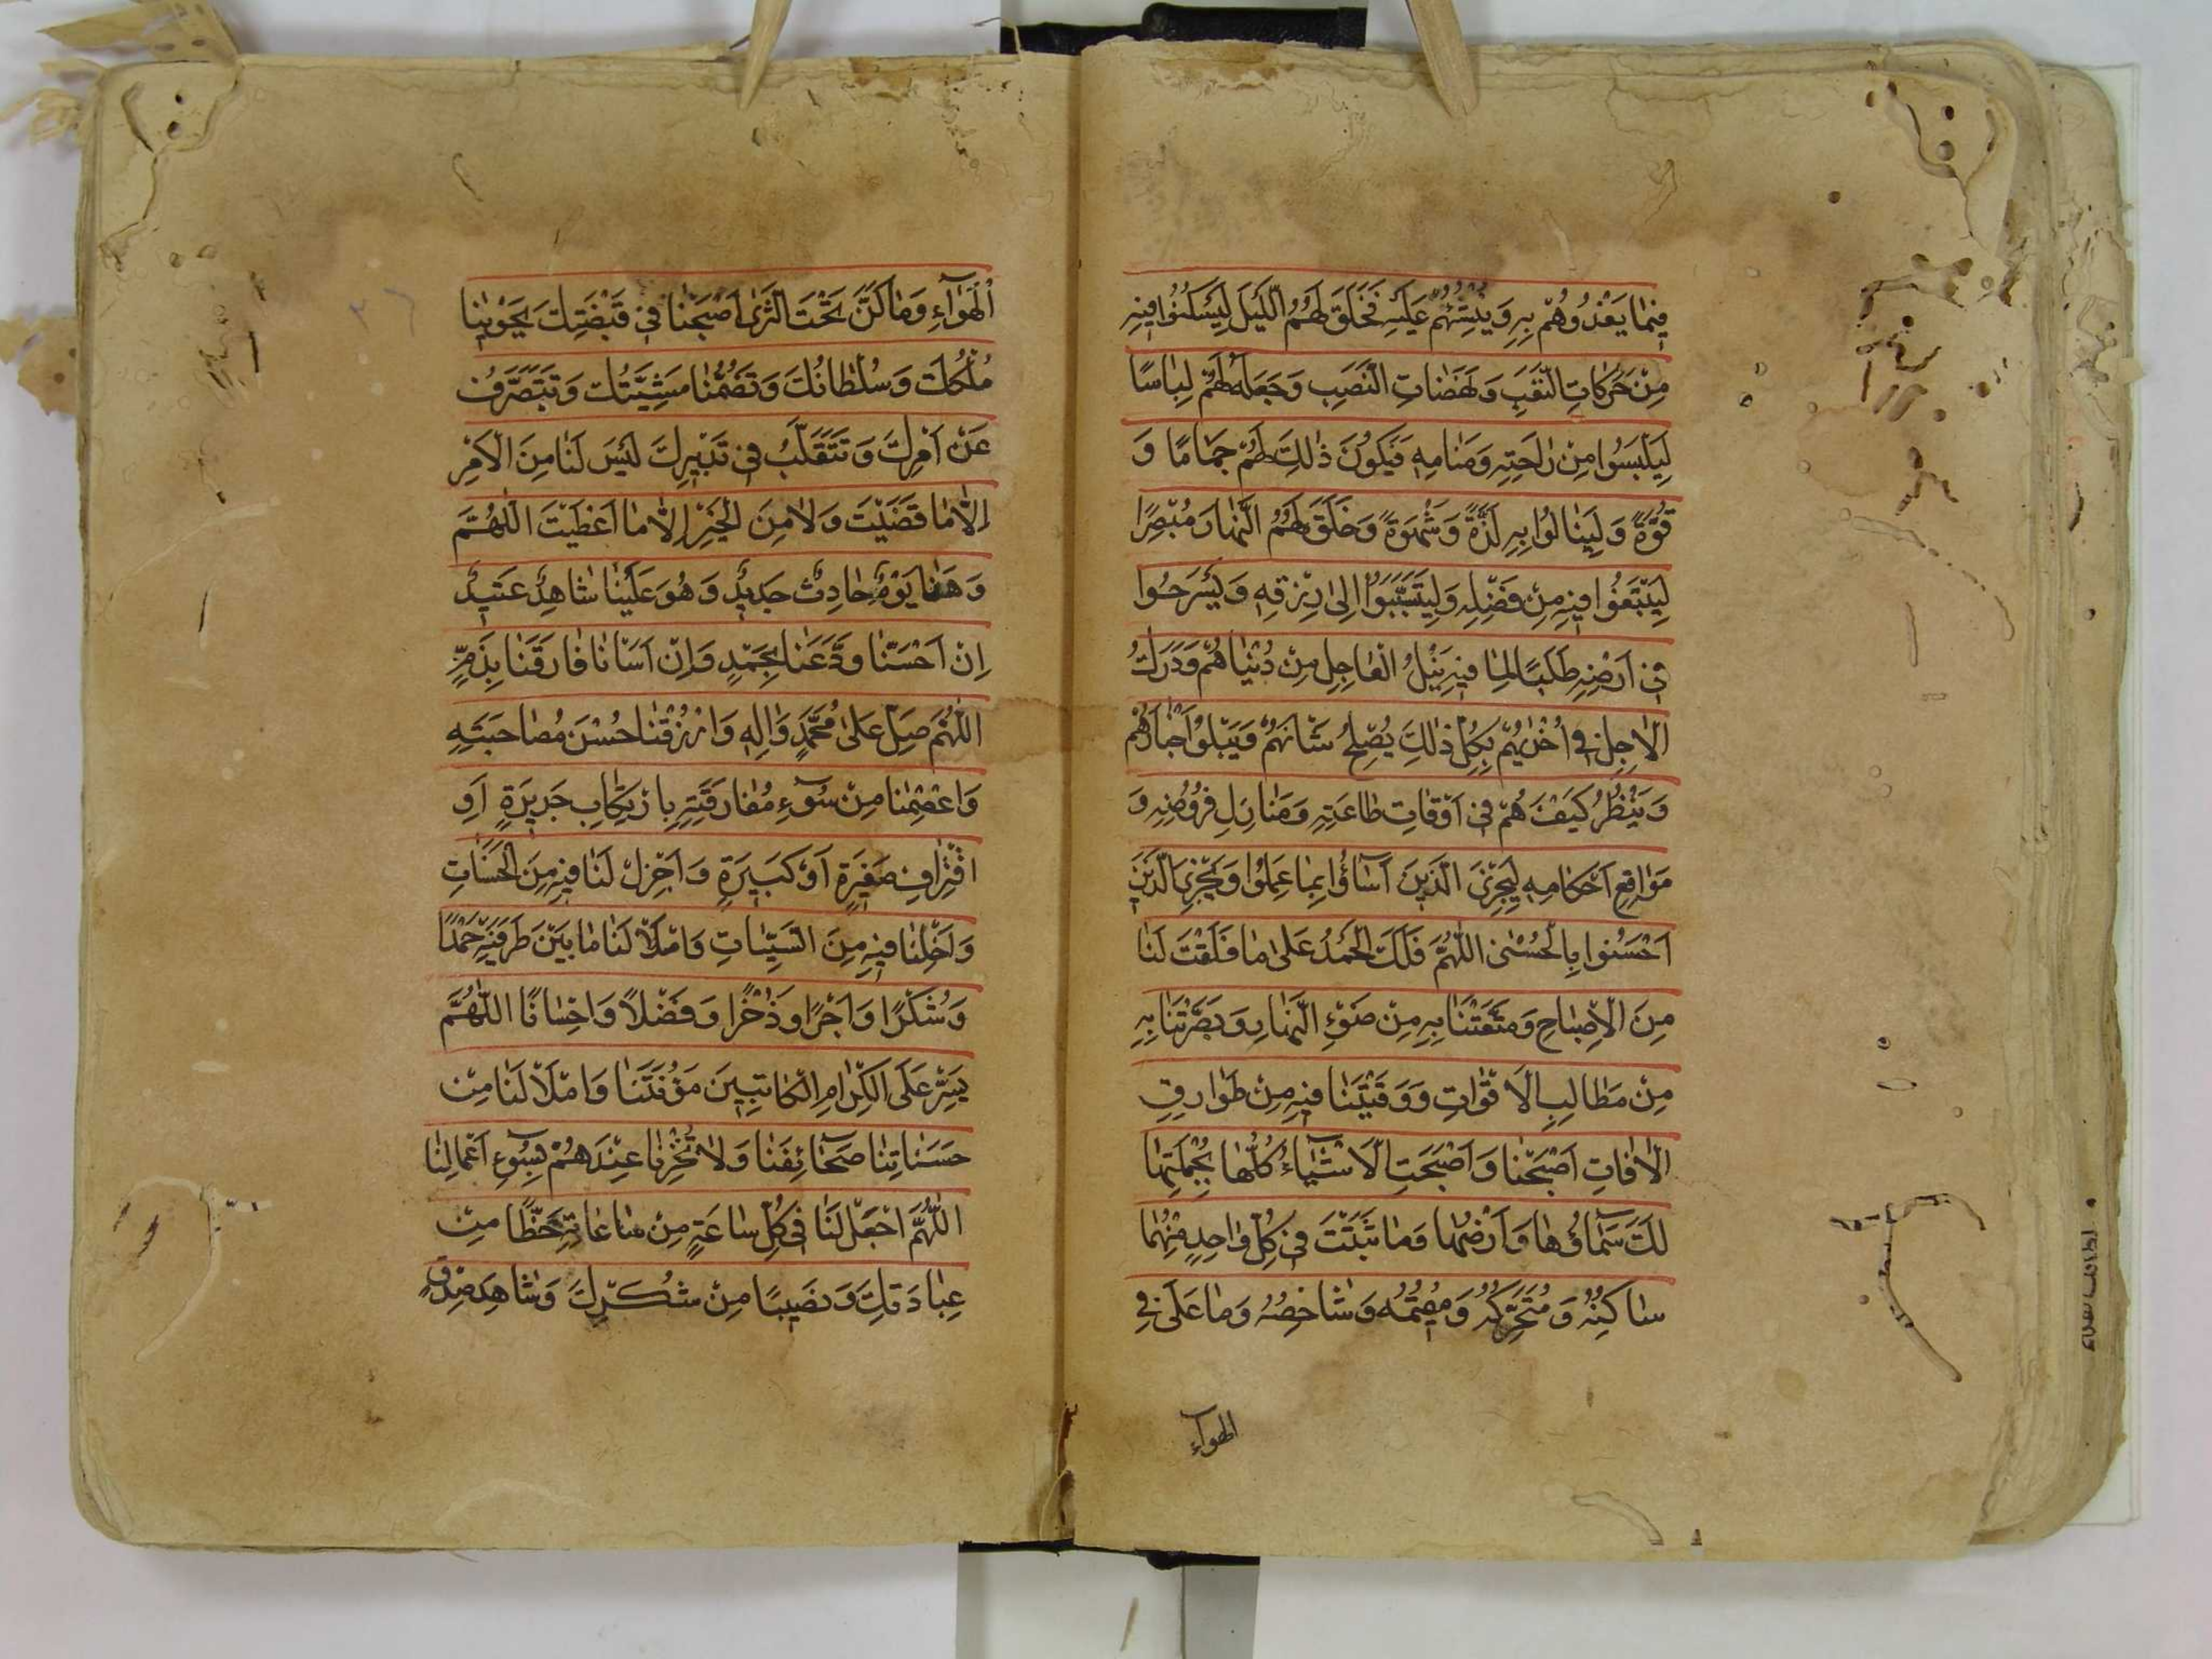 فِيمَا يَغْذُوهُمْ بِهِ وَيُنْشِئُهُمْ عَلَيْهِ فَخَلَقَ لَهُمُ اللَّيْلَ لِيَسْكُنُوا فِيهِ
مِنْ حَرَكَاتِ التَّعَبِ وَنَهَضَاتِ النَّصَبِ وَجَعَلَهُ لَهُمْ لِبَاسًا
لِيَلْبَسُوا مِنْ رَاحَتِهِ وَمَنَامِهِ فَيَكُونَ ذٰلِكَ لَهُمْ جَمَامًا وَ
قُوَّةً وَلِيَنَالُوا بِهِ لَذَّةً وَشَهْوَةً وَخَلَقَ لَهُمُ النَّهَارَ مُبْصِرًا
لِيَبْتَغُوا فِيهِ مِنْ فَضْلِهِ وَلِيَتَسَبَّبُوا اِلىٰ رِزْقِهِ وَيَسْرَحُوا
فِي اَرْضِهِ طَلَبًا لِمَا فِيهِ نَيْلُ الْعَاجِلِ مِنْ دُنْيَاهُمْ وَدَرَكُ
الْاٰجِلِ فِي اُخْرٰيهُمْ بِكُلِّ ذٰلِكَ يُصْلِحُ شَاْنَهُمْ وَيَبْلُوا اَخْبَارَهُمْ
وَيَنْظُرُ كَيْفَ هُمْ فِي اَوْقَاتِ طَاعَتِهِ وَمَنَازِلِ فُرُوضِهِ وَ
مَوَاقِعِ اَحْكَامِهِ لِيَجْزِيَ الَّذِينَ اَسَاؤُا بِمَا عَمِلُوا وَيَجْزِيَ الَّذِينَ
اَحْسَنُوا بِالْحُسْنىٰ اللّٰهُمَّ فَلَكَ الْحَمْدُ عَلىٰ مَا فَلَقْتَ لَنَا
مِنَ الْاِصْبَاحِ وَمَتَّعْتَنَا بِهِ مِنْ ضَوْءِ النَّهَارِ وَبَصَّرْتَنَا بِهِ
مِنْ مَطَالِبِ الْاَقْوَاتِ وَوَقَيْتَنَا فِيهِ مِنْ طَوَارِقِ
الْاٰفَاتِ اَصْبَحْنَا وَاَصْبَحَتِ الْاَشْيَاءُ كُلُّهَا بِجُمْلَتِهَا
لَكَ سَمَاؤُهَا وَاَرْضُهَا وَمَا بَثَثْتَ فِي كُلِّ وَاحِدٍ مِنْهُمَا
سَاكِنُهُ وَمُتَحَرِّكُهُ وَمُقِيمُهُ وَشَاخِصُهُ وَمَا عَلَى فِي
الهواء
الْهَوَاءِ وَمَا كَنَّ تَحْتَ الثَّرىٰ اَصْبَحْنَا فِي قَبْضَتِكَ يَحْوِينَا
مُلْكُكَ وَسُلْطَانُكَ وَتَضُمُّنَا مَشِيَّتُكَ وَنَتَصَرَّفُ
عَنْ اَمْرِكَ وَنَتَقَلَّبُ فِي تَدْبِيرِكَ لَيْسَ لَنَا مِنَ الْاَمْرِ
اِلَّا مَا قَضَيْتَ وَلَا مِنَ الْخَيْرِ اِلَّا مَا اَعْطَيْتَ اللّٰهُمَّ
وَهٰذَا يَوْمٌ حَادِثٌ جَدِيدٌ وَهُوَ عَلَيْنَا شَاهِدٌ عَتِيدٌ
اِنْ اَحْسَنَّا وَدَّعَنَا بِحَمْدٍ وَاِنْ اَسَاْنَا فَارَقَنَا بِذَمٍّ
اللّٰهُمَّ صَلِّ عَلىٰ مُحَمَّدٍ وَاٰلِهِ وَارْزُقْنَا حُسْنَ مُصَاحَبَتِهِ
وَاعْصِمْنَا مِنْ سُوءِ مُفَارَقَتِهِ بِارْتِكَابِ جَرِيرَةٍ اَوِ
اقْتِرَافِ صَغِيرَةٍ اَوْ كَبِيرَةٍ وَاَجْزِلْ لَنَا فِيهِ مِنَ الْحَسَنَاتِ
وَاَخْلِنَا فِيهِ مِنَ السَّيِّئَاتِ وَامْلَاْ لَنَا مَا بَيْنَ طَرَفَيْهِ حَمْدًا
وَشُكْرًا وَاَجْرًا وَذُخْرًا وَفَضْلًا وَاِحْسَانًا اللّٰهُمَّ
يَسِّرْ عَلَى الْكِرَامِ الْكَاتِبِينَ مَؤُنَتَنَا وَامْلَاْ لَنَا مِنْ
حَسَنَاتِنَا صَحَائِفَنَا وَلَا تُخْزِنَا عِنْدَهُمْ بِسُوءِ اَعْمَالِنَا
اللّٰهُمَّ اجْعَلْ لَنَا فِي كُلِّ سَاعَةٍ مِنْ سَاعَاتِهِ حَظًّا مِنْ
عِبَادَتِكَ وَنَصِيبًا مِنْ شُكْرِكَ وَشَاهِدَ صِدْقٍ